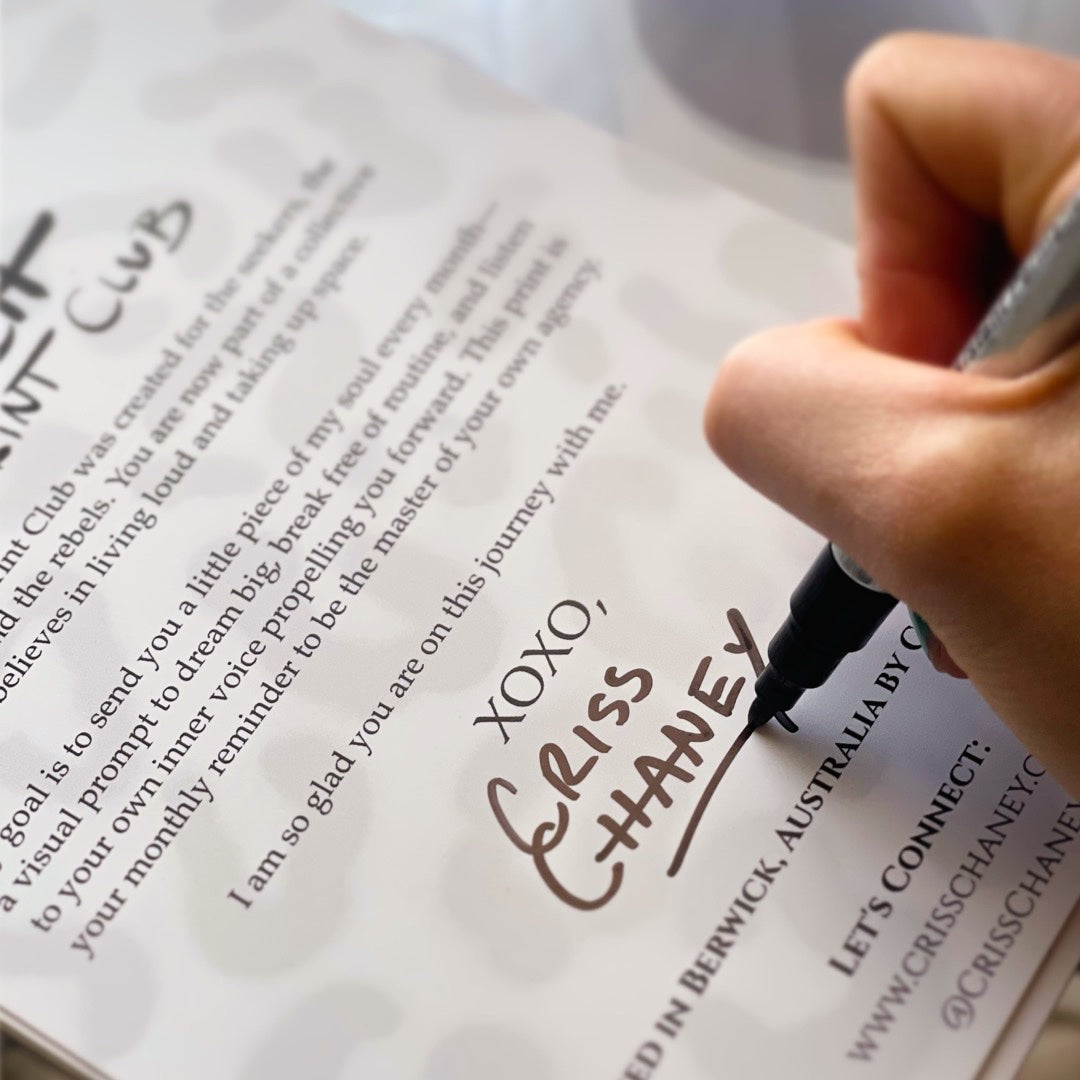 CLUB
Club was created for the seekers, the
the rebels. You are now part of a collective
believes in living loud and taking up space.
goal is to send you a little piece of my soul every month—
a visual prompt to dream big, break free of routine, and listen
to your own inner voice propelling you forward. This print is
your monthly reminder to be the master of your own agency.
I am so glad you are on this journey with me.
XOXO,
CRISS
CHANEY
IN BERWICK, AUSTRALIA BY
LET'S CONNECT:
WWW.CRISSCHANEY.C
@CRISSCHANEY